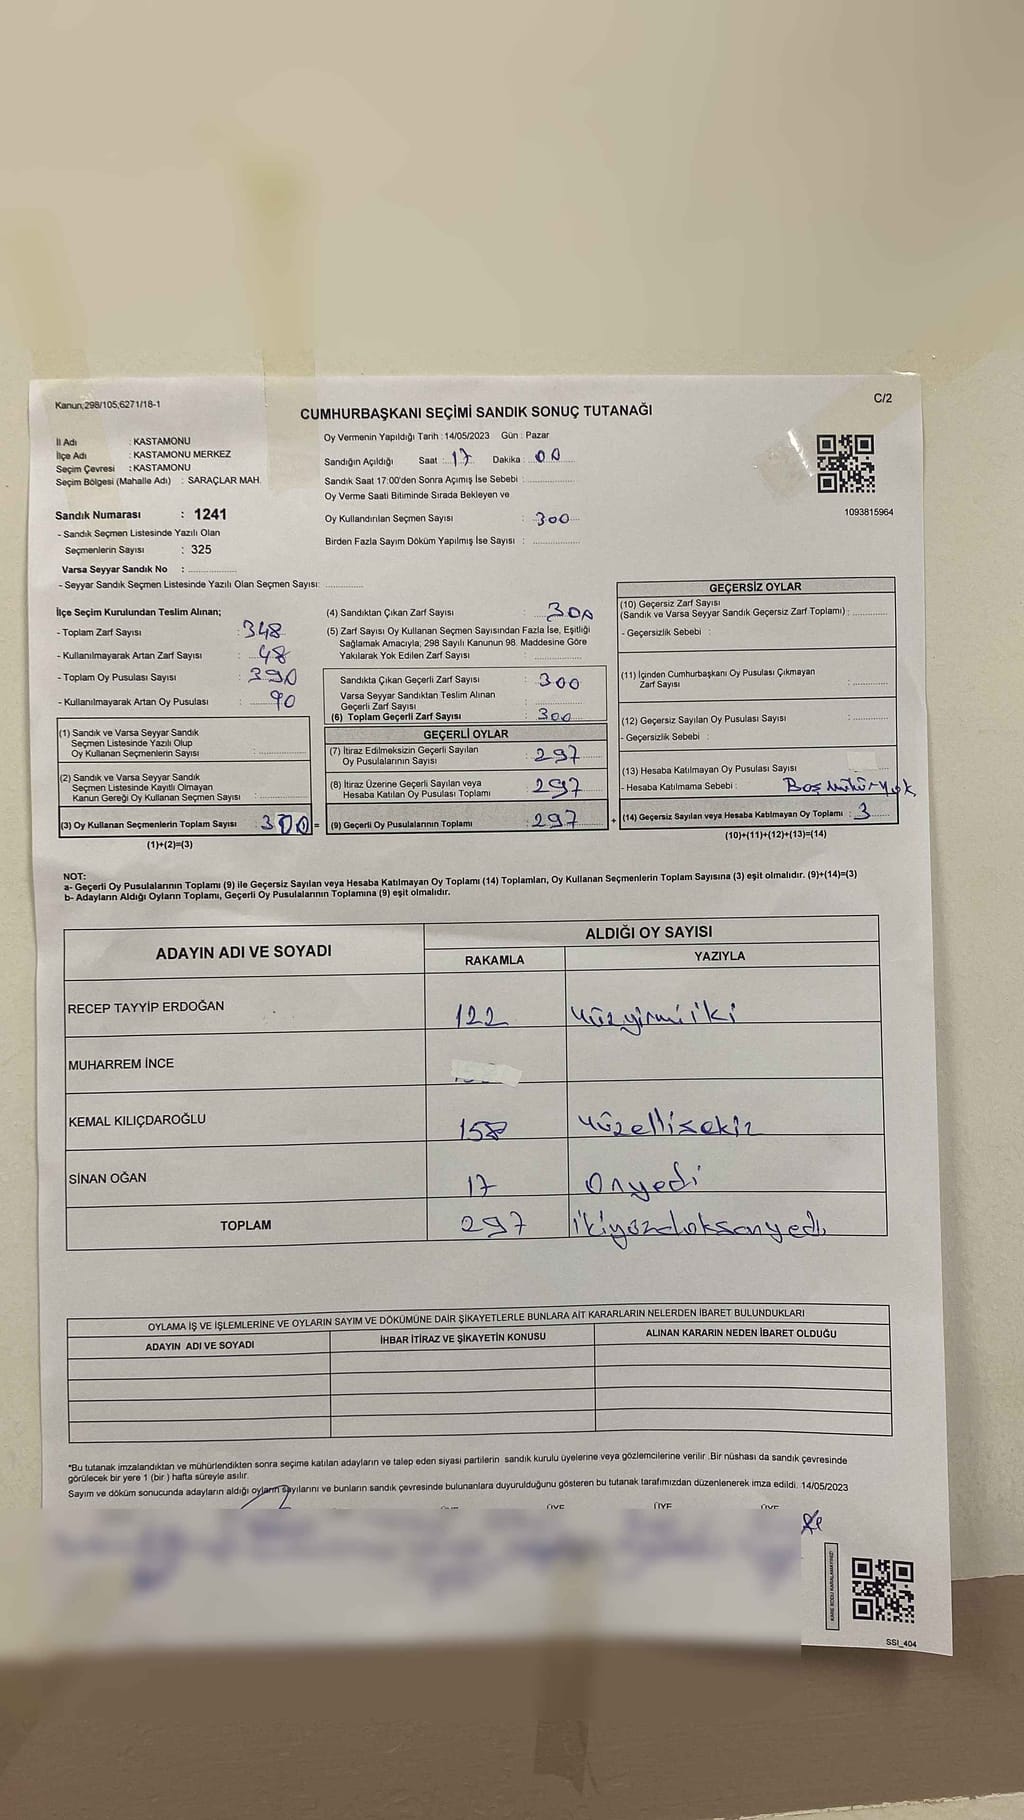 Kanun;298/105,6271/18-1
C/2
CUMHURBAŞKANI SEÇİMİ SANDIK SONUÇ TUTANAĞI
İl Adı : KASTAMONU
İlçe Adı : KASTAMONU MERKEZ
Seçim Çevresi : KASTAMONU
Seçim Bölgesi (Mahalle Adı) : SARAÇLAR MAH.
Oy Vermenin Yapıldığı Tarih : 14/05/2023 Gün : Pazar
Sandığın Açıldığı Saat : 17 Dakika : 00
Sandık Saat 17:00'den Sonra Açımış İse Sebebi :
Oy Verme Saati Bitiminde Sırada Bekleyen ve
Oy Kullandırılan Seçmen Sayısı : 300
Birden Fazla Sayım Döküm Yapılmış İse Sayısı :
1093815964
Sandık Numarası : 1241
- Sandık Seçmen Listesinde Yazılı Olan
Seçmenlerin Sayısı : 325
Varsa Seyyar Sandık No :
- Seyyar Sandık Seçmen Listesinde Yazılı Olan Seçmen Sayısı:
İlçe Seçim Kurulundan Teslim Alınan;
- Toplam Zarf Sayısı : 348
- Kullanılmayarak Artan Zarf Sayısı : 48
- Toplam Oy Pusulası Sayısı : 390
- Kullanılmayarak Artan Oy Pusulası : 90
(1) Sandık ve Varsa Seyyar Sandık
Seçmen Listesinde Yazılı Olup
Oy Kullanan Seçmenlerin Sayısı :
(2) Sandık ve Varsa Seyyar Sandık
Seçmen Listesinde Kayıtlı Olmayan
Kanun Gereği Oy Kullanan Seçmen Sayısı :
(3) Oy Kullanan Seçmenlerin Toplam Sayısı : 300 =
(1)+(2)=(3)
(4) Sandıktan Çıkan Zarf Sayısı : 300
(5) Zarf Sayısı Oy Kullanan Seçmen Sayısından Fazla İse, Eşitliği
Sağlamak Amacıyla, 298 Sayılı Kanunun 98. Maddesine Göre
Yakılarak Yok Edilen Zarf Sayısı :
Sandıkta Çıkan Geçerli Zarf Sayısı : 300
Varsa Seyyar Sandıktan Teslim Alınan
Geçerli Zarf Sayısı :
(6) Toplam Geçerli Zarf Sayısı : 300
GEÇERLİ OYLAR
(7) İtiraz Edilmeksizin Geçerli Sayılan
Oy Pusulalarının Sayısı : 297
(8) İtiraz Üzerine Geçerli Sayılan veya
Hesaba Katılan Oy Pusulası Toplamı : 297
(9) Geçerli Oy Pusulalarının Toplamı : 297 +
GEÇERSİZ OYLAR
(10) Geçersiz Zarf Sayısı
(Sandık ve Varsa Seyyar Sandık Geçersiz Zarf Toplamı) :
- Geçersizlik Sebebi :
(11) İçinden Cumhurbaşkanı Oy Pusulası Çıkmayan
Zarf Sayısı :
(12) Geçersiz Sayılan Oy Pusulası Sayısı :
- Geçersizlik Sebebi :
(13) Hesaba Katılmayan Oy Pusulası Sayısı
- Hesaba Katılmama Sebebi : Boş mühür yok
(14) Geçersiz Sayılan veya Hesaba Katılmayan Oy Toplamı : 3
(10)+(11)+(12)+(13)=(14)
NOT:
a- Geçerli Oy Pusulalarının Toplamı (9) ile Geçersiz Sayılan veya Hesaba Katılmayan Oy Toplamı (14) Toplamları, Oy Kullanan Seçmenlerin Toplam Sayısına (3) eşit olmalıdır. (9)+(14)=(3)
b- Adayların Aldığı Oyların Toplamı, Geçerli Oy Pusulalarının Toplamına (9) eşit olmalıdır.
ADAYIN ADI VE SOYADI
ALDIĞI OY SAYISI
RAKAMLA YAZIYLA
RECEP TAYYİP ERDOĞAN 122 yüzyirmiiki
MUHARREM İNCE
KEMAL KILIÇDAROĞLU 158 yüzellisekiz
SİNAN OĞAN 17 onyedi
TOPLAM 297 ikiyüzdoksanyedi
OYLAMA İŞ VE İŞLEMLERİNE VE OYLARIN SAYIM VE DÖKÜMÜNE DAİR ŞİKAYETLERLE BUNLARA AİT KARARLARIN NELERDEN İBARET BULUNDUKLARI
ADAYIN ADI VE SOYADI İHBAR İTİRAZ VE ŞİKAYETİN KONUSU ALINAN KARARIN NEDEN İBARET OLDUĞU
*Bu tutanak imzalandıktan ve mühürlendikten sonra seçime katılan adayların ve talep eden siyasi partilerin sandık kurulu üyelerine veya gözlemcilerine verilir .Bir nüshası da sandık çevresinde
görülecek bir yere 1 (bir ) hafta süreyle asılır.
Sayım ve döküm sonucunda adayların aldığı oyların sayılarını ve bunların sandık çevresinde bulunanlara duyurulduğunu gösteren bu tutanak tarafımızdan düzenlenerek imza edildi. 14/05/2023
ÜYE ÜYE ÜYE
SSI_404